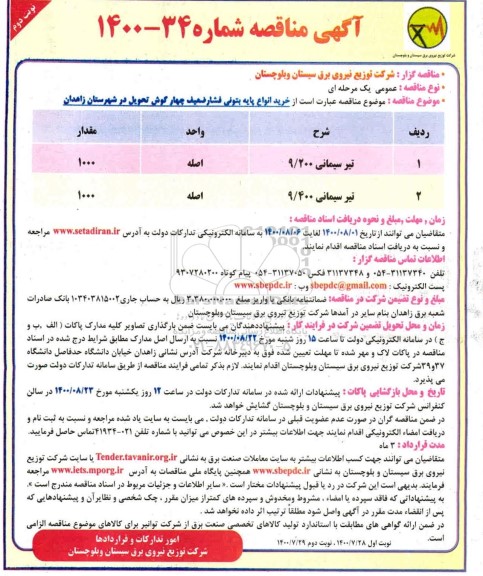 نوبت دوم
آگهی مناقصه شماره ۳۴-۱۴۰۰
شرکت توزیع نیروی برق سیستان و بلوچستان
مناقصه گزار : شرکت توزیع نیروی برق سیستان وبلوچستان
نوع مناقصه : عمومی یک مرحله ای
موضوع مناقصه : موضوع مناقصه عبارت است از خرید انواع پایه بتونی فشارضعیف چهارگوش تحویل در شهرستان زاهدان
ردیف شرح واحد مقدار
۱ تیر سیمانی ۹/۲۰۰ اصله ۱۰۰۰
۲ تیر سیمانی ۹/۴۰۰ اصله ۱۰۰۰
زمان , مهلت ,مبلغ و نحوه دریافت اسناد مناقصه :
متقاضیان می توانند ازتاریخ ۱۴۰۰/۰۸/۰۱ لغایت ۱۴۰۰/۰۸/۰۶ به سامانه الکترونیکی تدارکات دولت به آدرس www.setadiran.ir مراجعه
و نسبت به دریافت اسناد مناقصه اقدام نمایند.
اطلاعات تماس مناقصه گزار :
تلفن ۳۱۱۳۷۳۴۰-۰۵۴ و ۳۱۱۳۷۳۴۸ فکس ۳۱۱۳۷۰۵۰-۰۵۴ پیام کوتاه ۹۳۰۷۲۸۰۲۰۰
پست الکترونیک : sbepdc@gmail.com وب : www.sbepdc.ir
مبلغ و نوع تضمین شرکت در مناقصه: ضمانتنامه بانکی یا واریز مبلغ ریال به حساب جاری ۰۱۰۳۴۰۳۸۱۵۰۰۲ بانک صادرات
شعبه برق زاهدان بنام سایر در آمدها شرکت توزیع نیروی برق سیستان وبلوچستان
زمان و محل تحویل تضمین شرکت در فرایند کار : پیشنهاددهندگان می بایست ضمن بارگذاری تصاویر کلیه مدارک پاکات ( الف ,ب و
ج ) در سامانه الکترونیکی دولت تا ساعت ۱۵ روز شنبه مورخ ۱۴۰۰/۰۸/۲۲ نسبت به ارسال اصل مدارک مطابق شرایط درج شده در اسناد
مناقصه در پاکات لاک و مهر شده تا مهلت تعیین شده فوق به دبیرخانه شرکت آدرس نشانی زاهدان خیابان دانشگاه حدفاصل دانشگاه
۳۷و۳۹شرکت توزیع نیروی برق سیستان وبلوچستان اقدام نمایند. لازم بذکر تمامی فرایند مناقصه از طریق سامانه تدارکات دولت صورت
می پذیرد.
تاریخ و محل بازگشایی پاکات : پیشنهادات ارئه شده در سامانه تدارکات دولت در ساعت ۱۲ روز یکشنبه مورخ ۱۴۰۰/۰۸/۲۳ در سالن
کنفرانس شرکت توزیع نیروی برق سیستان و بلوچستان گشایش خواهد شد.
در ضمن مناقصه گران در صورت عدم عضویت قبلی در سامانه تدارکات دولت , می بایست به سایت یاد شده مراجعه و نسبت به ثبت نام و
دریافت امضاء الکترونیکی اقدام نمایند جهت اطلاعات بیشتر در این خصوص می توانید با شماره تلفن ۰۲۱-۴۱۹۳۴تماس حاصل فرمایید.
مدت قرارداد : ۳ ماه
متقاضیان می توانند جهت کسب اطلاعات بیشتر به سایت معاملات صنعت برق به نشانی Tender.tavanir.org.ir یا سایت شرکت توزیع
نیروی برق سیستان و بلوچستان به نشانی www.sbepdc.ir همچنین پایگاه ملی مناقصات به آدرس www.iets.mporg.ir مراجعه
فرمایند. بدیهی است این شرکت در رد یا قبول پیشنهادات مختار است .« سایر اطلاعات و جزئیات مربوط در اسناد مناقصه مندرج است ».
به پیشنهاداتی که فاقد سپرده یا امضاء , مشروط ومخدوش و سپرده های کمتراز میزان مقرر , چک شخصی و نظایرآن و پیشنهادهایی که
پس از انقضاء مدت مقرر در آگهی واصل شود مطلقاً ترتیب اثر داده نخواهد شد .
در ضمن ارائه گواهی های مطابقت با استاندارد تولید کالاهای تخصصی صنعت برق از شرکت توانیر برای کالاهای موضوع مناقصه الزامی
است.
نوبت اول ۱۴۰۰/۷/۲۸ , نوبت دوم ۱۴۰۰/۷/۲۹
امور تدارکات و قراردادها
شرکت توزیع نیروی برق سیستان وبلوچستان